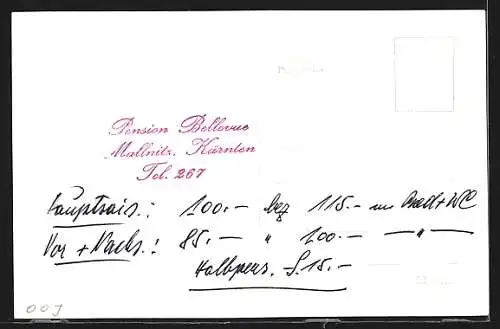 Pension Bellevue
Mallnitz, Kärnten
Tel. 267
Hauptsais.: 100.- bez 115.- m Bad + WC
Vor + Nachs.: 85.- " 100.- —"—
Halbpens. S. 15.-